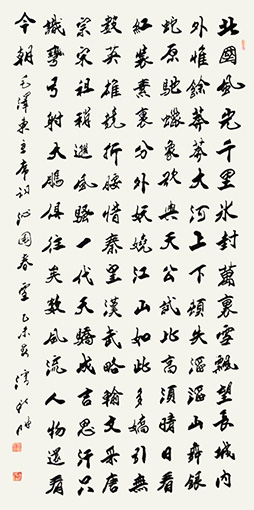 北國風光千里冰封萬裏雪飄望長城內
外惟餘莽莽大河上下頓失滔滔山舞銀
蛇原馳蠟象欲與天公試比高須晴日看
紅裝素裹分外妖嬈江山如此多嬌引無
數英雄競折腰惜秦皇漢武略輸文采唐
宗宋祖稍遜風騷一代天驕成吉思汗只
識彎弓射大鵰俱往矣數風流人物還看
今朝 毛澤東主席詞沁園春雪乙未